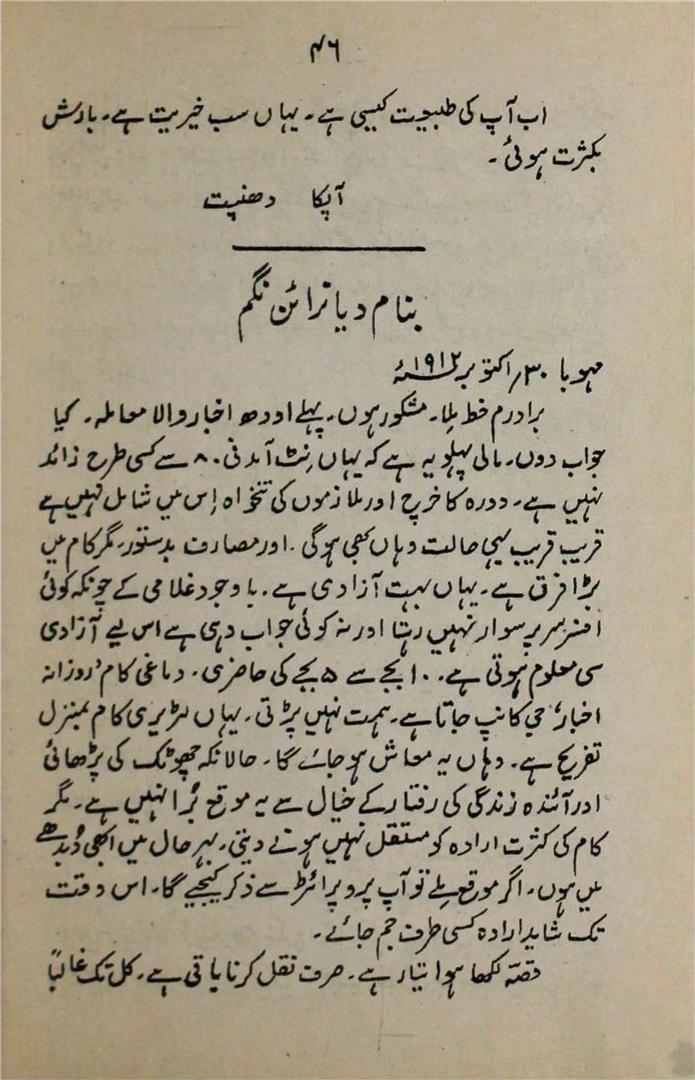 ۴۶
اب آپ کی طبیعت کیسی ہے۔ یہاں سب خیریت ہے۔ بارش
بکثرت ہوئی۔
آپکا دھنپت
بنام دیا نرائن نگم
مہوبا ۳۰؍اکتوبر ۱۹۱۲ء
برادرم خط ملا۔ مشکور ہوں۔ پہلے اودھ اخبار والا معاملہ۔ کیا
جواب دوں۔ مالی پہلو یہ ہے کہ یہاں نِٹ آمدنی ۸۰ سے کسی طرح زائد
نہیں ہے۔ دورہ کا خرچ اور ملازموں کی تنخواہ اِس میں شامل نہیں ہے
قریب قریب یہی حالت وہاں بھی ہوگی۔ اور مصارف بدستور۔ مگر کام میں
بڑا فرق ہے۔ یہاں بہت آزادی ہے۔ باوجود غلامی کے چونکہ کوئی
افسر سر پر سوار نہیں رہتا اور نہ کوئی جواب دہی ہے اس لیے آزادی
سی معلوم ہوتی ہے۔ ۱۰ بجے سے ۵ بجے کی حاضری۔ دماغی کام، روزانہ
اخبار، جی کانپ جاتا ہے۔ ہمت نہیں پڑتی۔ یہاں لٹریری کام بمنزل
تفریح ہے۔ وہاں یہ معاش ہو جائے گا۔ حالانکہ چھوٹک کی پڑھائی
اور آئندہ زندگی کی رفتار کے خیال سے یہ موقع بُرا نہیں ہے۔ مگر
کام کی کثرت ارادہ کو مستقل نہیں ہونے دیتی۔ بہر حال میں ابھی دُبدھے
میں ہوں۔ اگر موقع ملے تو آپ پروپرائٹر سے ذکر کیجیے گا۔ اس وقت
تک شاید ارادہ کسی طرف جم جائے۔
قصّہ لکھا ہوا تیار ہے۔ صرف نقل کرنا باقی ہے۔ کل تک غالباً